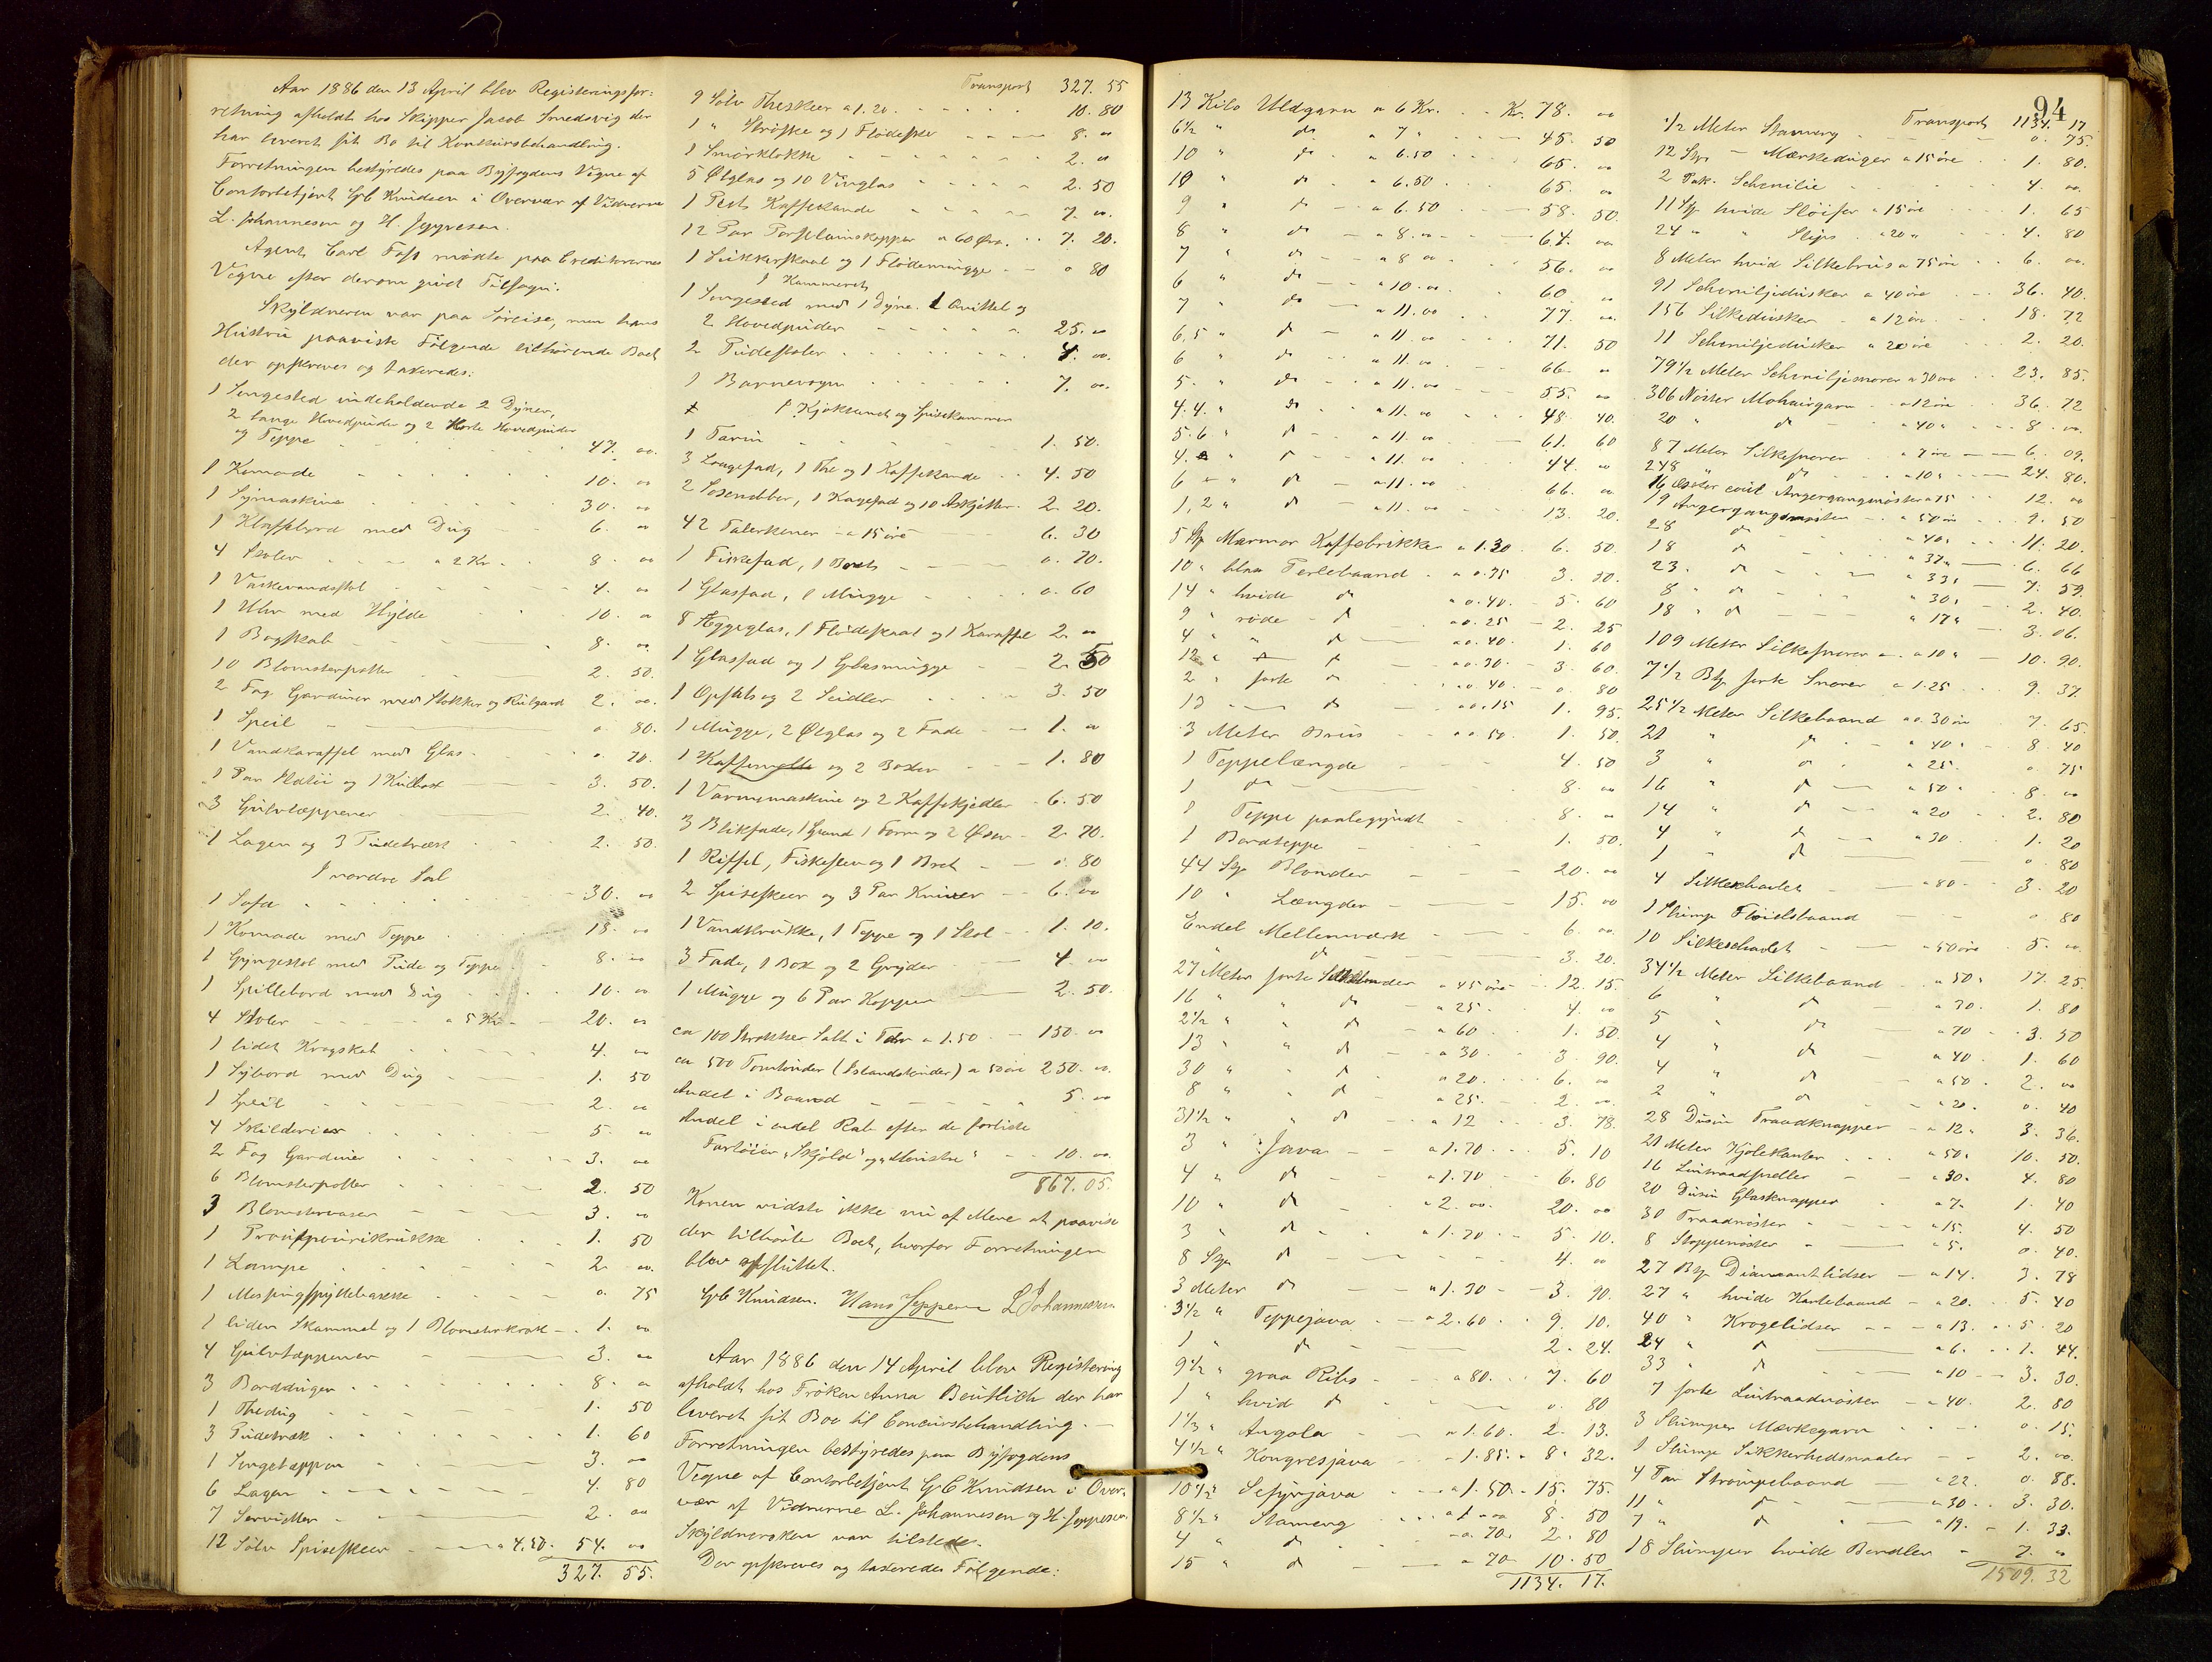 Aar 1886 den 13 April blev Registeringsfor-
retning afholdt hos Skipper Jacob Smedsvig der
har leveret sit Bo til Konkursbehandling.
Forretningen bestyredes paa Byfogdens Vegne af
Contorbetjent G C Knudsen i Overvær af Vidnerne
L. Johannesen og H. Jeppesen.
Agent Carl Foss mødte paa Creditorernes
Vegne efter derom givet Tilsagn.
Skyldneren var paa Søreise, men hans
Hustru paaviste Følgende tilhørende Boet
der opskreves og taxeredes:
1 Sengested indeholdende 2 Dyner,
2 lange Hovedpuder og 2 korte Hovedpuder
og Teppe 47. 00.
1 Komode 10. 00
1 Symaskine 30. 00
1 Klapbord med Dug 6. 00
4 Stoler a 2 Kr 8. 00
1 Vaskevandsstol 4. 00
1 Uhr med Hylde 10. 00
1 Bogskab 8. 00
10 Blomsterpotter 2. 50.
2 Fag Gardiner med Stokker og Rulgard 2. 00.
1 Speil 0. 80.
1 Vandkaraffel med Glas 0. 70.
1 Par og 1 Kulbox 3. 50.
3 Gulvtæppener 2. 40.
1 Lagen og 3 Pudetræk 2. 50.
I nordre Sal
1 Sofa 30. 00
1 Komode med Teppe 18. 00
1 Gyngestol med Pude og Teppe 8. 00
1 Spillebord med Dug 10. 00
4 Stoler a 5 Kr 20. 00
1 lidet Krogskab 4. 00
1 Sybord med Dug 1. 50
1 Speil 2. 00
4 Skilderier 5. 00
2 Fag Gardiner 3. 00
6 Blomsterpotter 2. 50
3 Blomstervaser 3. 00
1 1. 50
1 Lampe 2. 00.
1 0. 75
1 liden Skammel og 1 Blomsterkrak 1. 00
4 Gulvtæppener 3. 00
3 Borddugen 8. 00
1 Thedug 1. 50
3 Pudetræk 1. 60
1 Sengetæppen 3. 00
6 Lagen 4. 80
7 Servietter 2. 00
12 Sølv Spiseskeer a 4.50. 54. 00
327. 55.
Transport 327. 55
9 Sølv Theskeer a 1.20. 10. 80
1 " Strøske og 1 Flødeske 8. 00
1 Smørklokke 2. 00
5 Ølglas og 10 Vinglas 2. 50
1 Kaffekande 7. 00.
12 Par Porselainskopper a 60 Øre. 7. 20.
1 Sukkerskaal og 1 Flødemugge 0 80
I Kammeret
1 Sengested med 1 Dyne. 1 og
2 Hovedpuder 25. 00
2 Pudestoler 4. 00.
1 Barnevogn 7. 00.
I Kjøkkenet og Spisekammer
1 Tarin 1. 50.
3 Langefad, 1 The og 1 Kaffekande 4. 50
2 Sosenebber, 1 Kagefad og 10 Askjetter 2. 20.
42 Talerkener a 15 øre 6. 30
1 Fiskefad, 1 Bret 0. 70.
1 Glasfad, 1 Mugge 0. 60
8 Æggeglas, 1 Flødeskaal og 1 Karaffel 2. 00
1 Glasfad og 1 Glasmugge 2. 50
1 Opsats og 2 Seidler 3. 50
1 Mugge, 2 Ølglas og 2 Fade 1. 00
1 Kaffemølle og 2 Boxer 1. 80
1 Varmemaskine og 2 Kaffekjedler 6. 50
3 Blikfade, 1 Spand 1 Form og 2 Øser 2. 70.
1 Riffel, Fiskesten og 1 Bret 0. 80
2 Spiseskeer og 3 Par Kniver 6. 00
1 Vandkrukke, 1 Teppe og 1 Stol 1. 10.
3 Fade, 1 Box og 2 Gryder 4. 00
1 Mugge og 6 Par Kopper 2. 50.
ca 100 Strækker Salt i a 1.50 150. 00
ca 500 Tomtønder (Islandstønder) a 50 øre 250. 00.
Andel i Baand 5. 00
Andel i endel Rab efter de forliste
Fartøier „Skjold" og „ " 10. 00.
867. 05.
Konen vidste ikke nu af Mere at paavise
der tilhørte Boet, hvorfor Forretningen
blev afsluttet.
G C Knudsen. Hans Jeppesen L Johannesen
Aar 1886 den 14 April blev Registering
afholdt hos Frøken Anna Beutlich der har
leveret sit Boe til Concursbehandling.
Forretningen bestyredes paa Byfogdens
Vegne af Contorbetjent G C Knudsen i Over-
vær af Vidnerne L. Johannesen og H. Jeppesen.
Skyldnersken var tilstede.
Der opskreves og taxeredes Følgende:
94
13 Kilo Uldgarn a 6 Kr. Kr. 78. 00
6½ " do a 7 " 45. 50
10 " do a 6.50 65. 00
10 " do a 6.50. 65. 00
9 " do a 6.50 58. 50.
8 " do a 8.00 64. 00
7 " do a 8 00 56. 00
6 " do a 10.00 60 00
7 " do a 11.00 77. 00.
6,5 " do a 11.00 71. 50
6 " do a 11.00 66. 00
5. " do a 11.00 55. 00
4.4. " do a 11.00 48. 40.
5.6 " do a 11.00 61. 60
4. " do a 11.00 44. 00
6 " do a 11.00 66. 00
1,2 " do a 11.00 13. 20.
5 Stp Marmor Kaffebrikker a 1.30 6. 50.
10 " blaa Perlebaand a 0.35 3. 50.
14 " hvide do a 0.40. 5. 60
9 " røde do a 0.25 2. 25
4 " " do a 0.40. 1. 60
12 " do a 0.30. 3. 60.
2 " sorte do a 0.40. 0. 80
13 do a 0.15 1. 95.
3 Meter Brus a 0.50. 1. 50.
1 Teppelængde 4. 50
1 do 8. 00
1 Teppe paabegyndt 8. 00
1 Bordteppe 1. 50.
44 Stp Blonder 20. 00
10 " Længder 15. 00
Endel Mellemværk 6. 00.
" do 3. 20.
27 Meter sorte a 45 øre 12. 15.
16 " " do a 25. 4. 00
2½ " " do a 60 1. 50.
13 " " do a 30. 3. 90.
30 " " do a 20. 6. 00
8 " " do a 25. 2. 00.
31½ " " do a 12 3. 78.
3 " Java a 1.70 5. 10
4 " do a 1.70 6. 80
10 " do a 2.00. 20. 00
3 " do a 1.70 5. 10.
8 Stp do 4. 00
3 Meter do a 1.30 3. 90.
3½ " Teppejava a 2.60 9. 10.
1 " do 2. 24.
9½ " graa Ribs a 80. 7. 60
1 " hvid do 0. 80
1⅓ " Angola a 1.60. 2. 13.
4½ " Kongresjava 1.85. 8. 32.
10½ " Sefyrjava a 1.50. 15. 75.
8½ " Stameng a 1.00 8. 50
4 " do a 70. 2. 80
15 " do a 70 10. 50
1134. 17.
Transport 1134. 17
½ Meter Stameng 0. 75.
12 Stp Mærkeduger a 15 øre 1. 80.
2 Pak. Schenilie 4. 00.
11 Stp hvide Sløifer a 15 øre 1. 65
24 " " Slips a 20 " 4. 80
8 Meter hvid Silkebrus a 75 øre 6. 00.
91 Scheniljedusker a 40 øre 36. 40.
156 Silkedusker a 12 øre 18. 72
11 Scheniljedusker a 20 øre 2. 20.
79½ Meter Scheniljesnorer a 30 øre 23. 85.
306 Nøster Mohairgarn a 12 øre 36. 72
20 " do a 40 " 8. 00.
87 Meter Silkesnorer a 7 øre 6. 09.
248 " do a 10 " 24. 80.
16 a 75 12. 00
19 a 50 øre 9. 50
28 do a 40 " 11. 20.
18 do a 37 " 6. 66
23. do a 33 " 7. 59.
8 " do a 30 " 2. 40.
18 " do a 17 " 3. 06.
109 Meter Silkesnorer a 10 " 10. 90.
7½ Stp sorte Snorer a 1.25 9. 37.
25½ Meter Silkebaand a 0.30 øre 7. 65.
21 " do a 40 " 8. 40
3 " do a 25. 0. 75
16 " do a 50 " 8. 00
14 " do a 20 2. 80
4 " do a 30 1. 20
1 " do 0. 80
4 Silkeschavlet a 80 3. 20
1 Slump Fløielsbaand 0. 80
10 Silkeschavlet a 50 øre 5. 00.
34½ Meter Silkebaand a 50 " 17. 25
6 " do a 30. 1. 80
5 " do a 70 3. 50
4 " do a 40. 1. 60
4 " do a 50. 2. 00
2 " do a 20. 0. 40
28 Dusin Traadknapper a 12 " 3. 36.
21 Meter Kjolekanter a 50 " 10. 50.
16 Lintraadsneller a 30. 4. 80
20 Dusin Glasknapper a 7. 1. 40
30 Traadnøster a 15. 4. 50
8 Stoppenøster a 5. 0. 40.
27 Stp Diamantlidser a 14. 3. 78
27 " hvide Kantebaand a 20. 5. 40
40 " Krogelidser a 13. 5. 20
24 " do a 6. 1. 44.
33 " do a 10 3. 30.
7 sorte Lintraadnøster a 40. 2. 80
3 Slumper Mærkegarn 0. 15.
1 Slump Sikkerhedsnaaler 2. 00.
4 Par Strømpebaand a 22. 0. 88.
11 " do a 30. 3. 30.
7 " do a 19. 1. 33.
18 Slumper hvide Bendler 7. 00
1509. 32